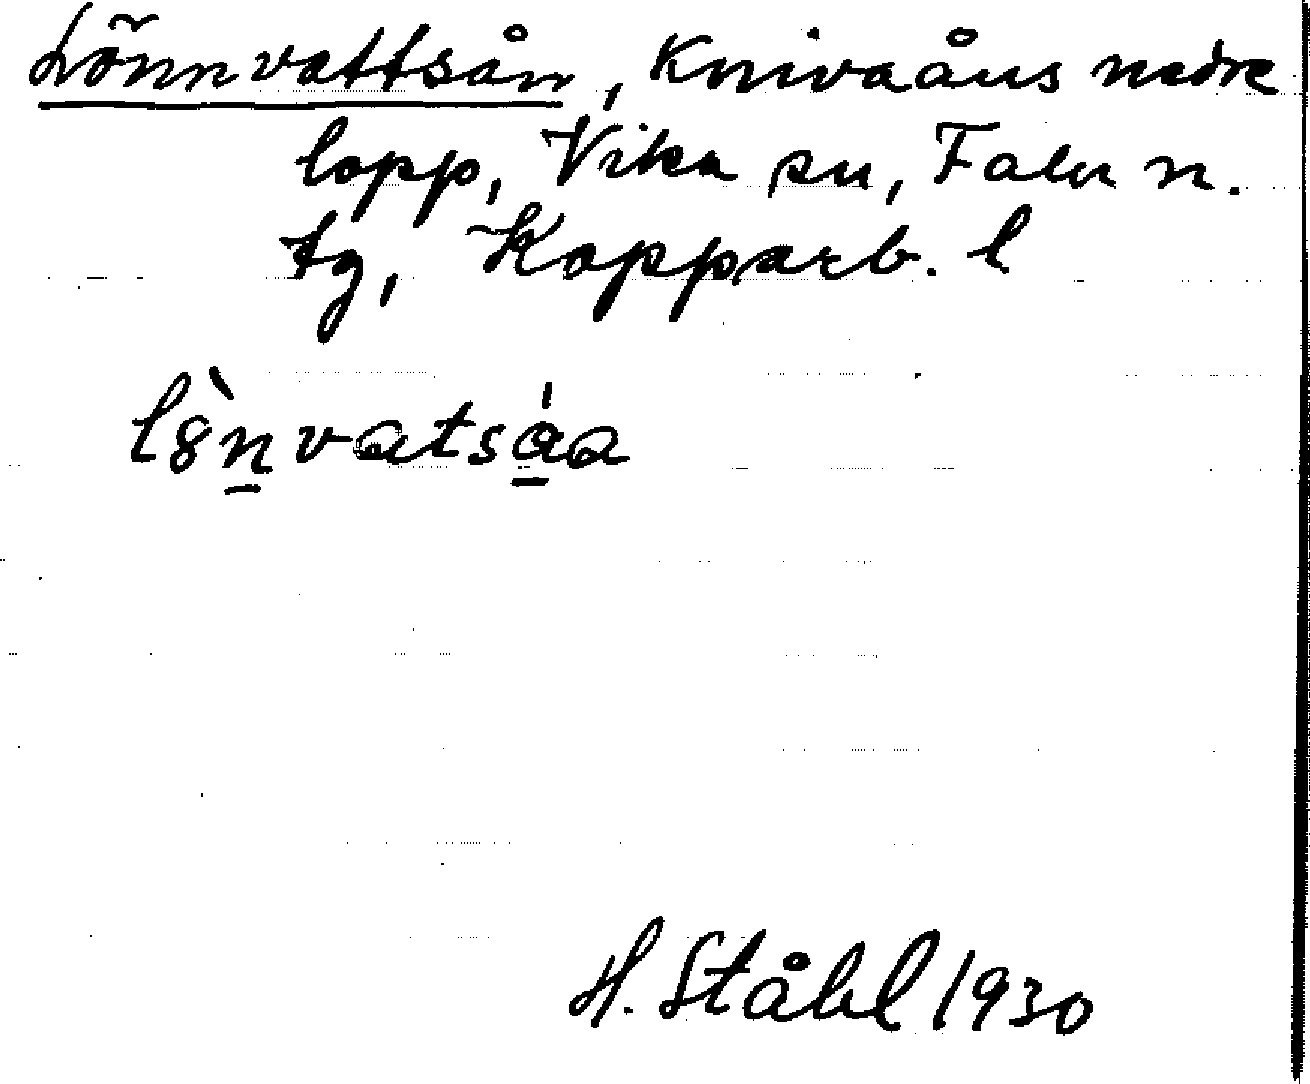 Lönnvattsån, Knivaåns nedre
lopp, Vika sn, Falu n.
tg, Kopparb. l
l8̀n̲vatsá̲a
H. Ståhl 1930